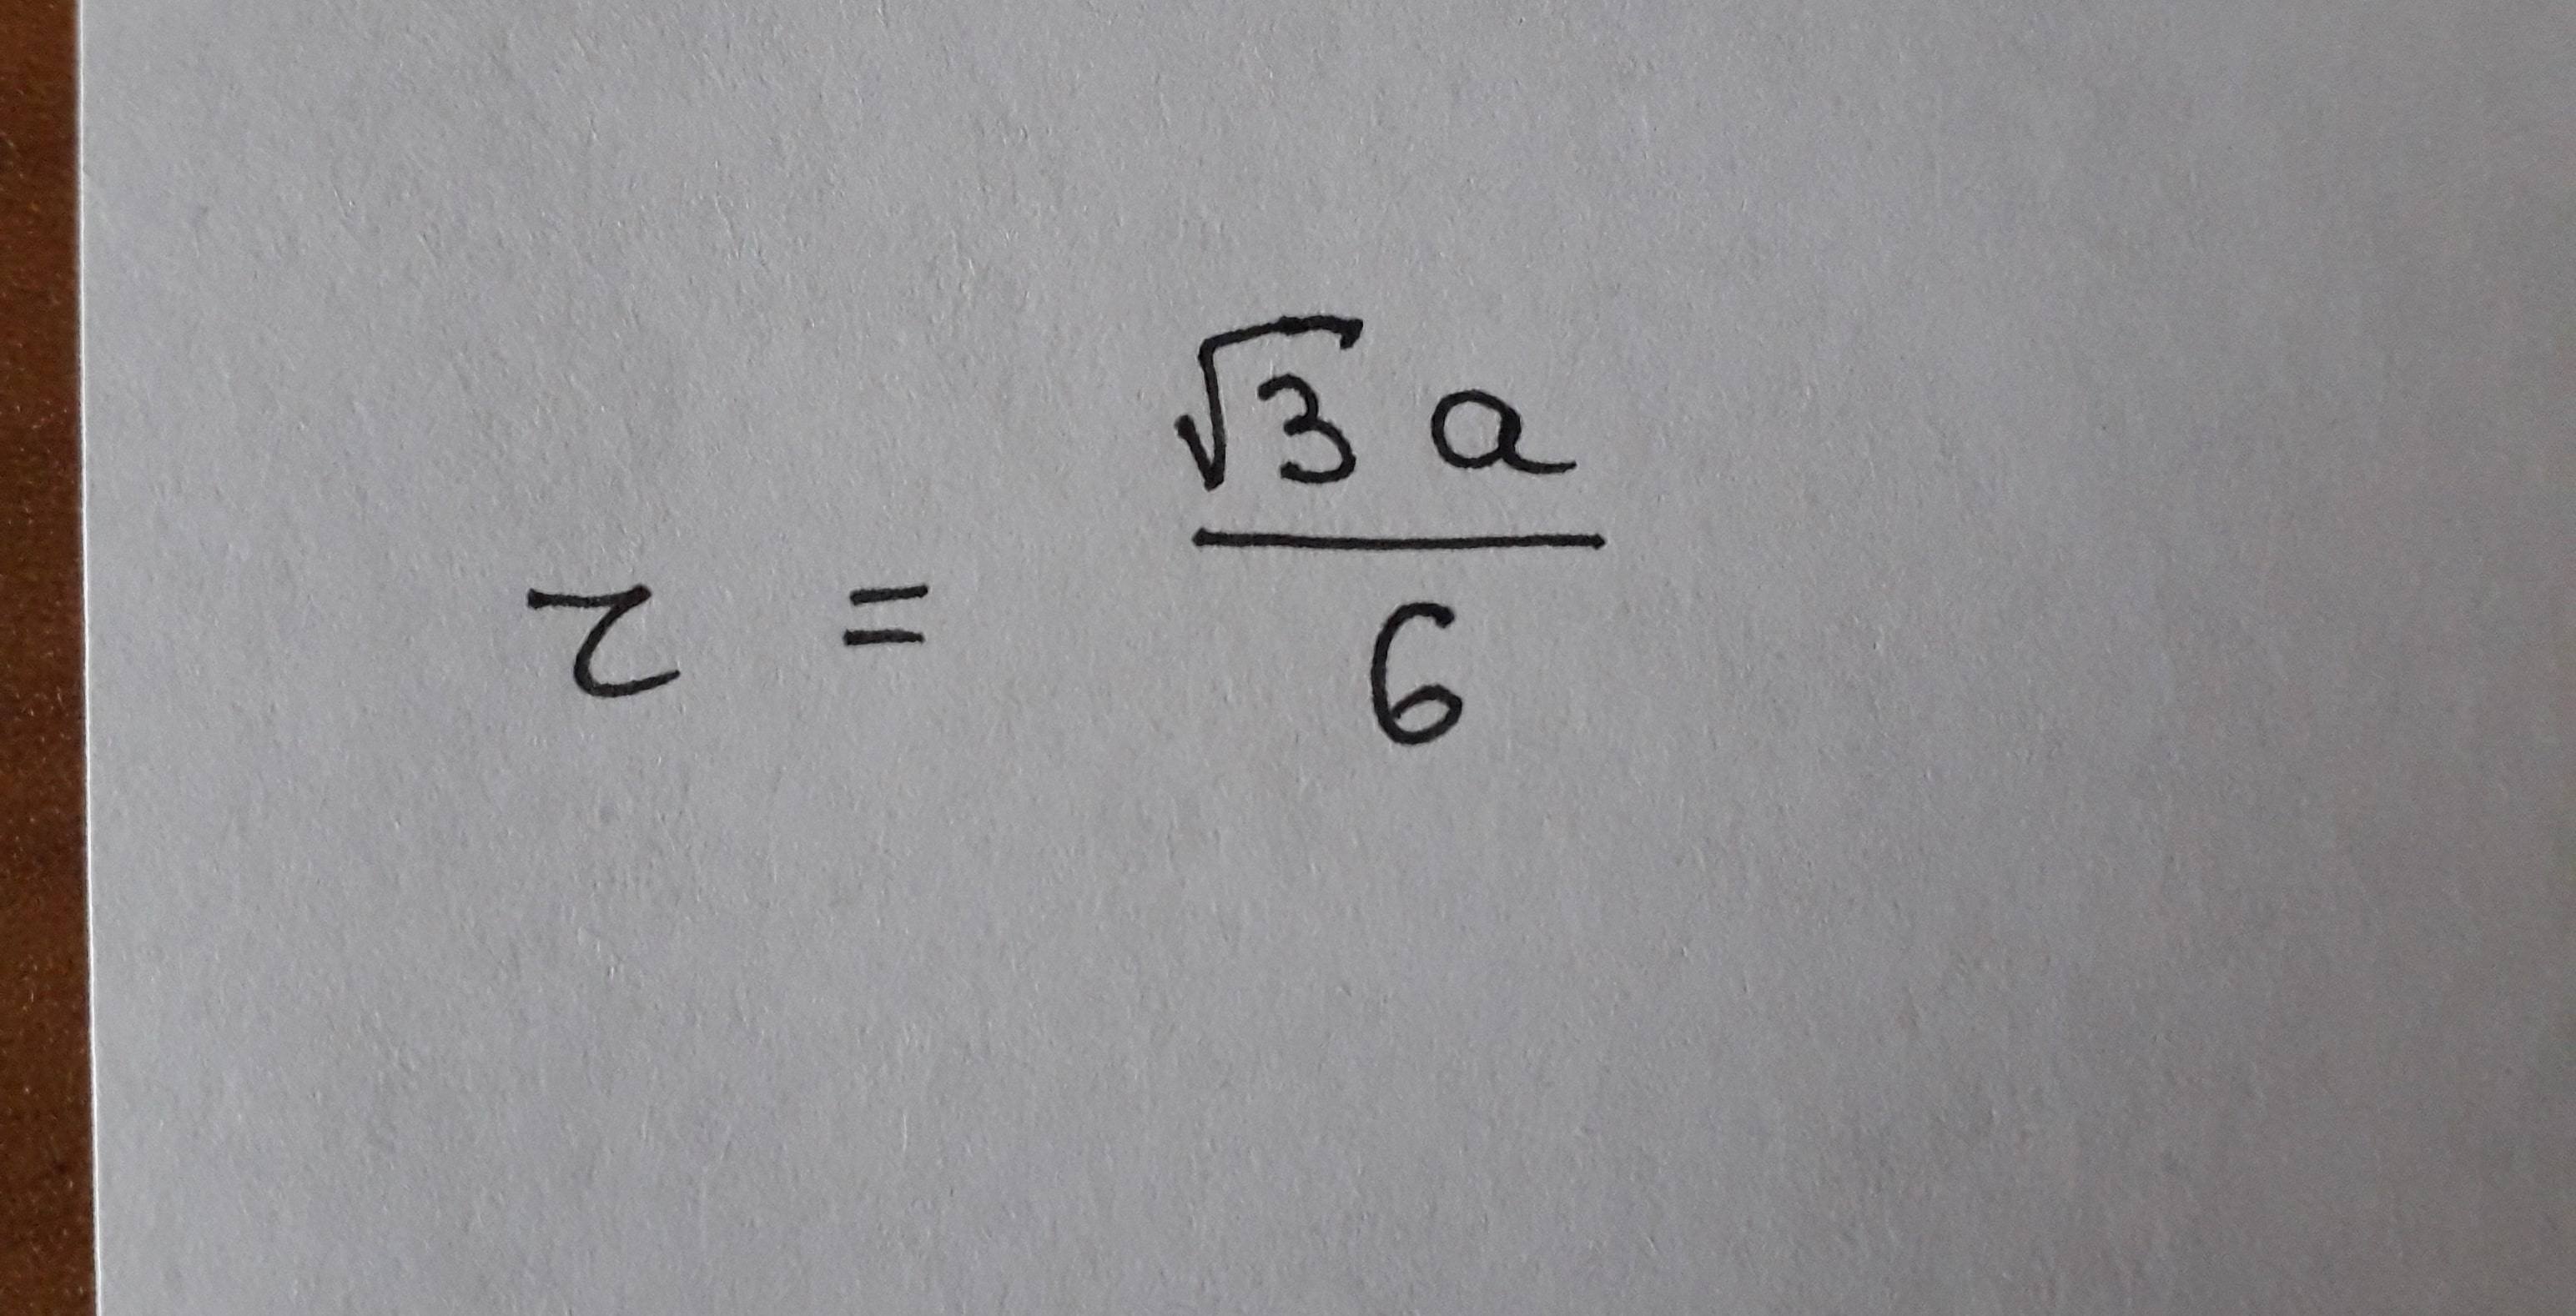 r = √3 a / 6